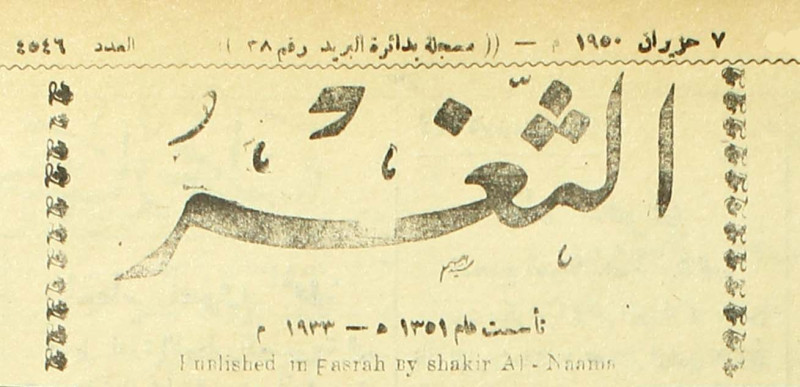 ٧ حزيران ١٩٥٠ م — (( مسجلة بدائرة البريد رقم ٢٨ )) العدد ٤٥٤٦
الثَّغْرُ
تأسست عام ١٣٥١ ه — ١٩٣٣ م
Published in Basrah By shakir Al - Naama